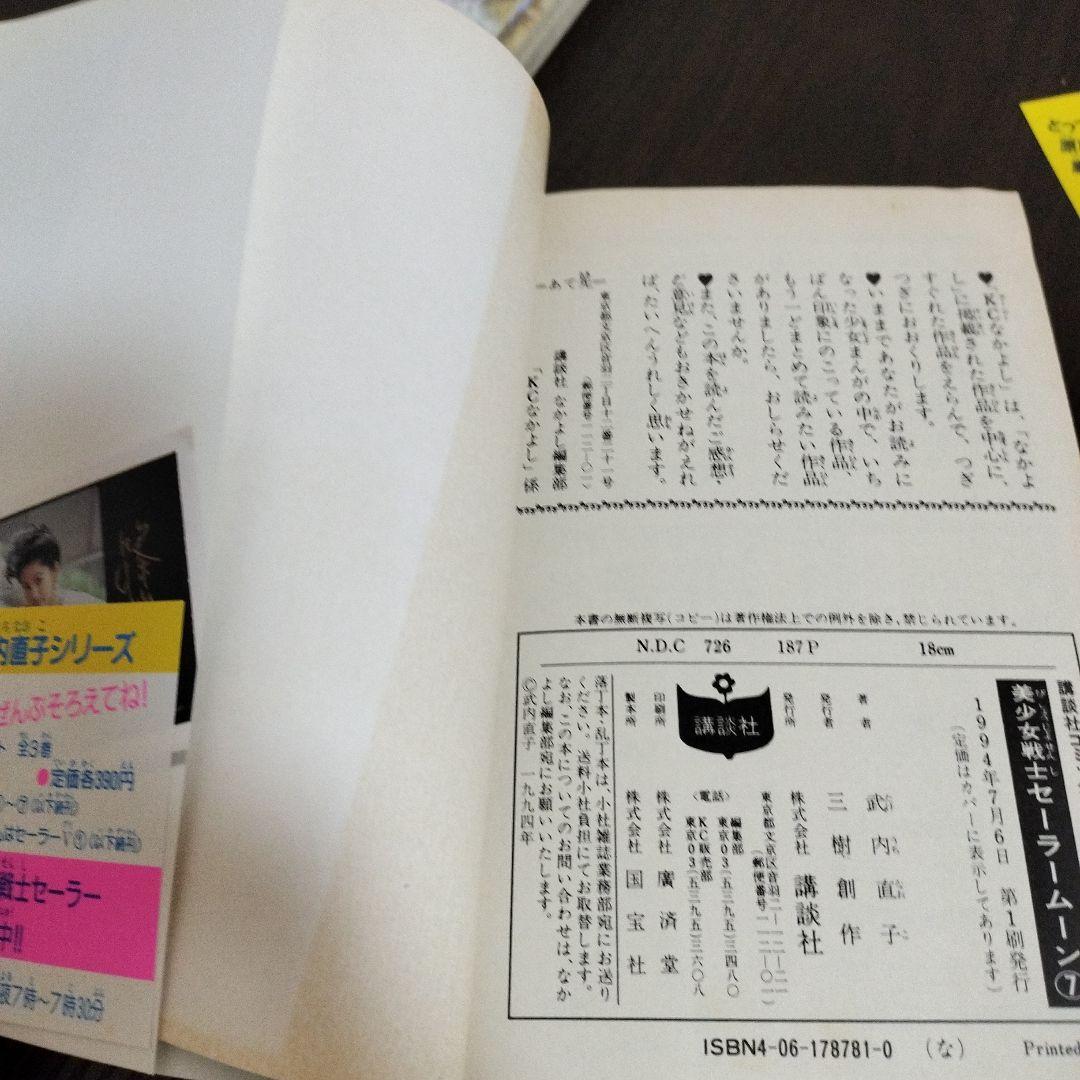 ♥「KCなかよし」は、「なかよ
し」に掲載された作品を中心に、
すぐれた作品をえらんで、つぎ
つぎにおおくりします。
♥いままであなたがお読みに
なった少女まんがの中で、いち
ばん印象にのこっている作品、
もう一どまとめて読みたい作品
がありましたら、おしらせくだ
さいませんか。
♥また、この本を読んだご感想・
ご意見などもおきかせねがえれ
ば、たいへんうれしく思います。
―あて先―
東京都文京区音羽二丁目十二番二十一号
(郵便番号一一二-〇一)
講談社 なかよし編集部
「KCなかよし」係
本書の無断複写(コピー)は著作権法上での例外を除き,禁じられています。
N.D.C 726 187P 18cm
講談社コミ
美少女戦士セーラームーン⑦
1994年7月6日 第1刷発行
(定価はカバーに表示してあります)
著者 武内直子
発行者 三樹創作
発行所 株式会社 講談社
東京都文京区音羽二-一二-二一
(郵便番号一一二-〇一)
〈電話〉 編集部 東京03(五三九五)三四八〇
KC販売部 東京03(五三九五)三六〇八
講談社
印刷所 株式会社 廣済堂
製本所 株式会社 国宝社
落丁本・乱丁本は、小社雑誌業務部宛にお送り
ください。送料小社負担にてお取替します。
なお、この本についてのお問い合わせは、なか
よし編集部宛にお願いいたします。
©武内直子 一九九四年
ISBN4-06-178781-0 (な) Printed
内直子シリーズ
ぜんぶそろえてね!
ト 全3巻
●定価各390円
～⑦(以下続刊)
はセーラーV①(以下続刊)
戦士セーラー
中!!
夜7時～7時30分
とっ